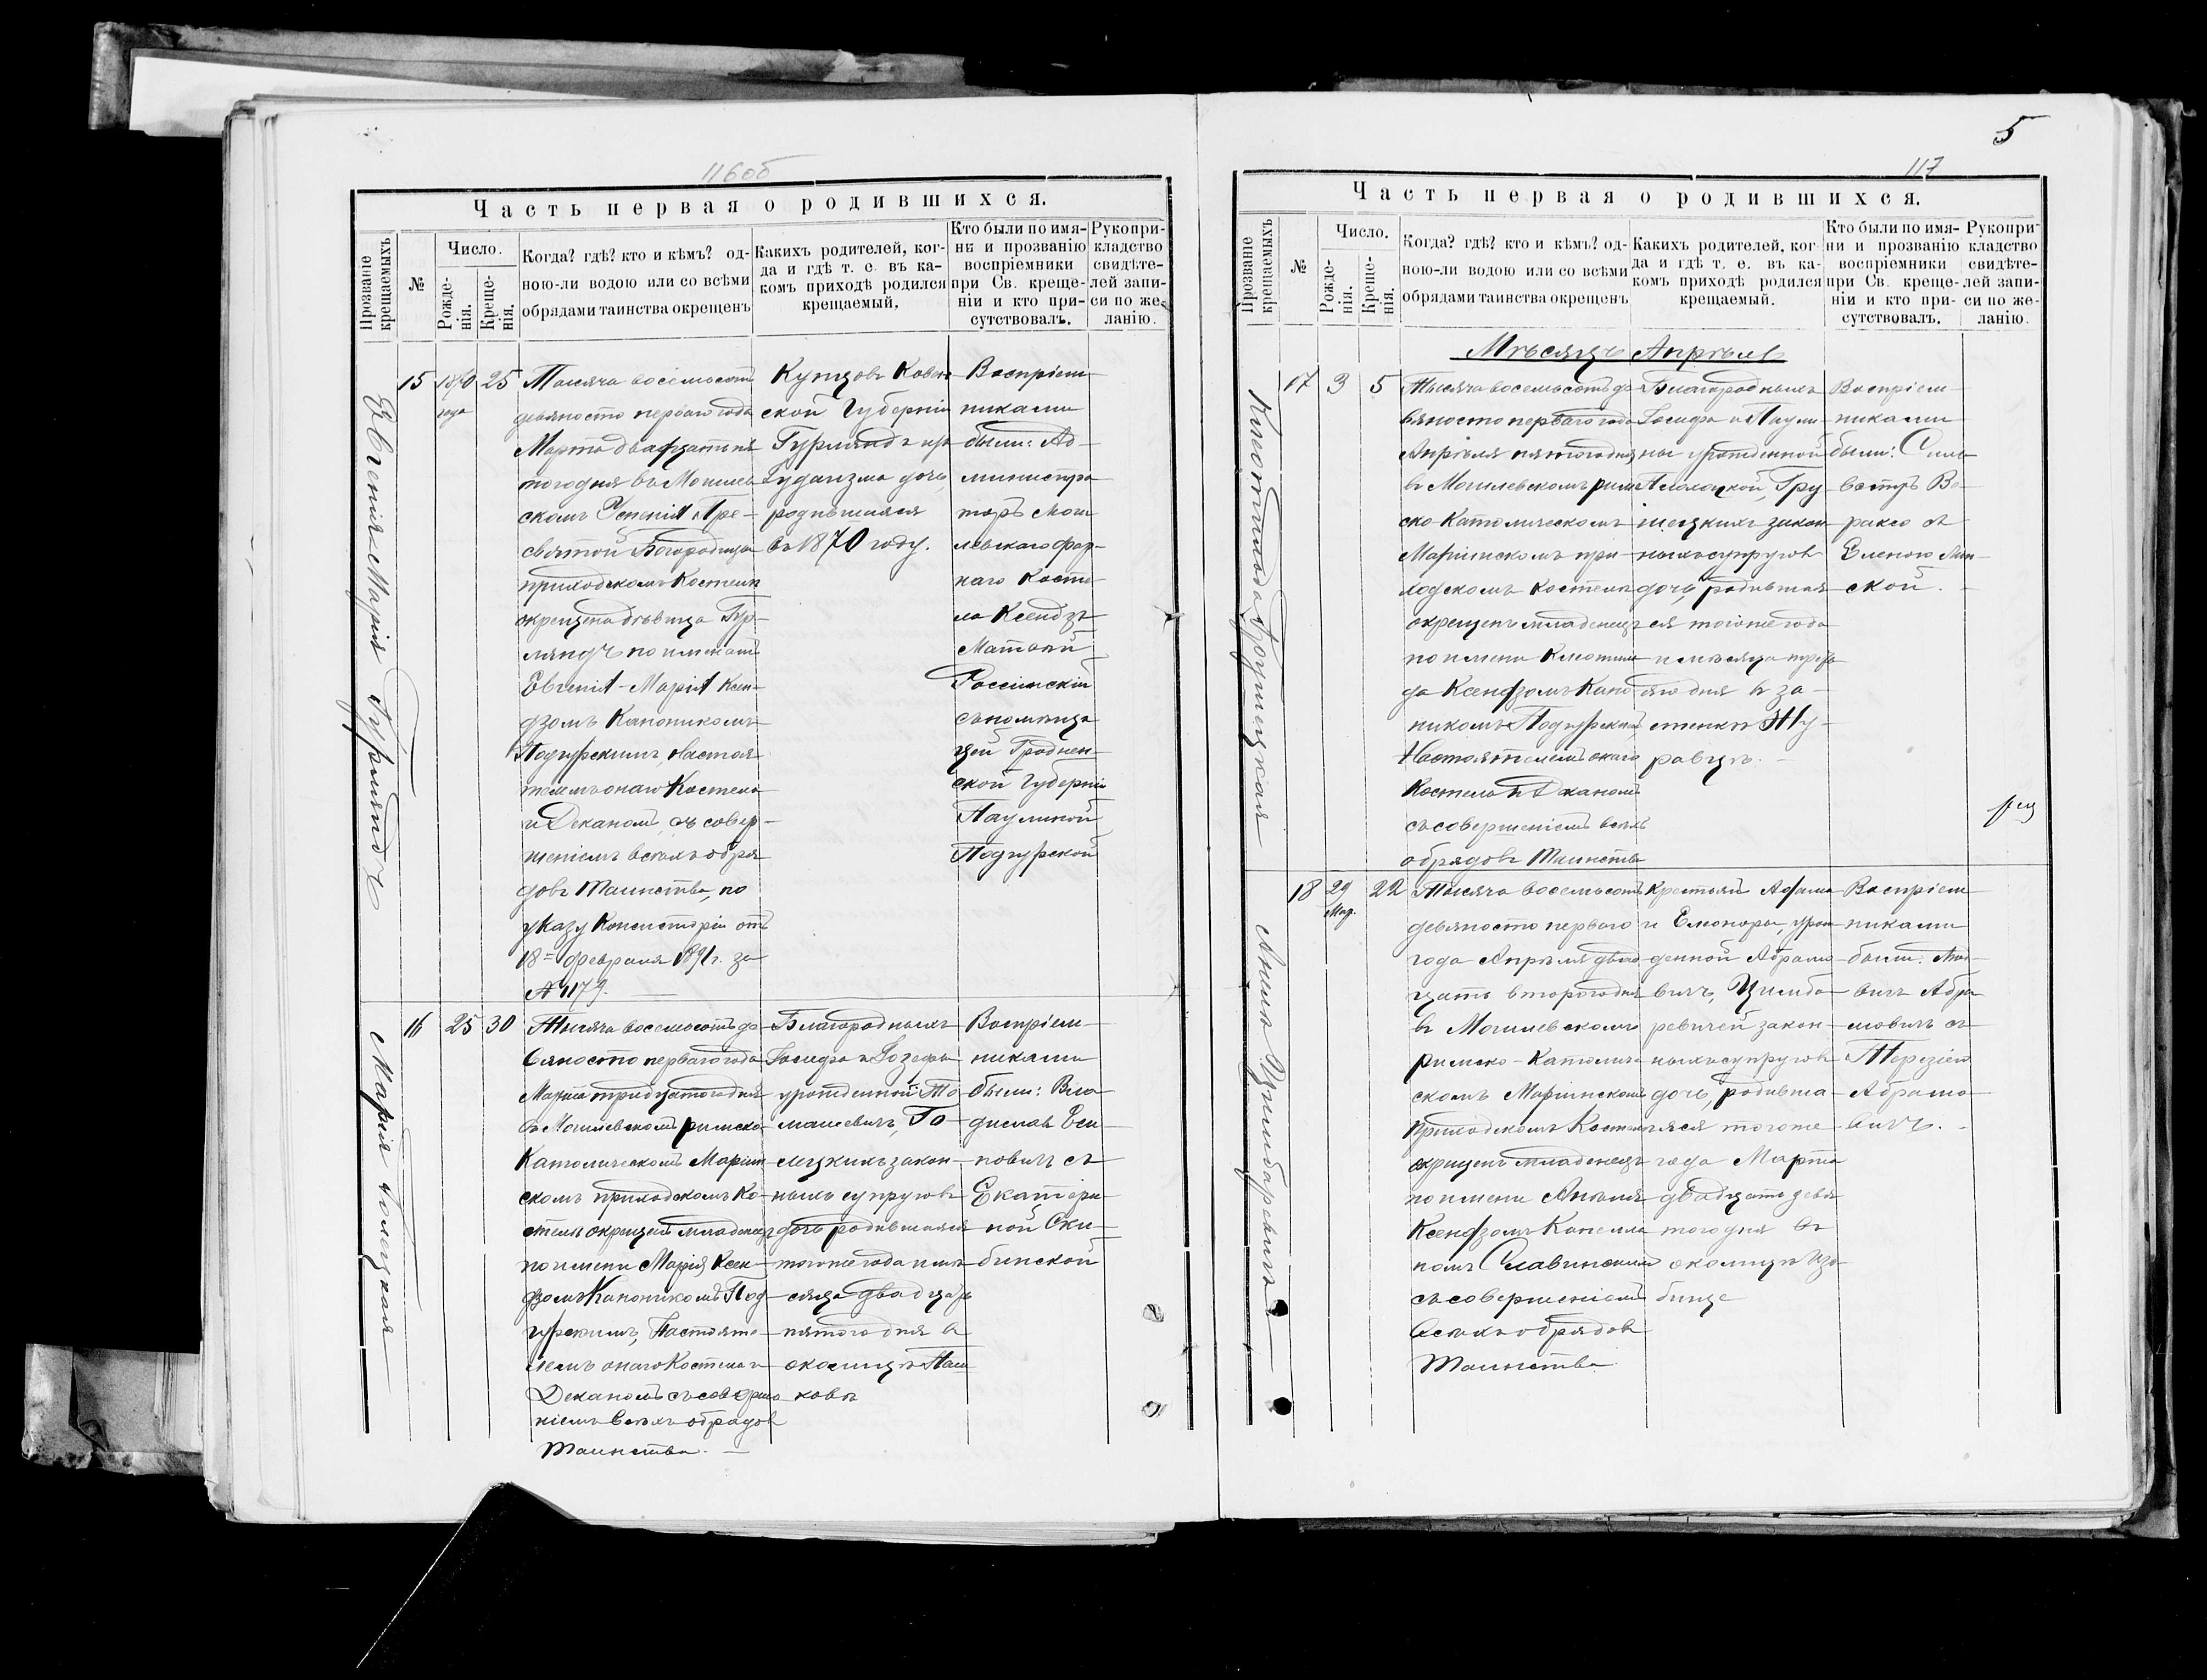 116об
Часть первая о родившихся.
Прозваніе крещаемыхъ
№
Число.
Рожде-
нія.
Креще-
нія.
Когда? гдѣ? кто и кѣмъ? од-
ною-ли водою или со всѣми
обрядами таинства окрещенъ
Какихъ родителей, ког-
да и гдѣ т. е. въ ка-
комъ приходѣ родился
крещаемый.
Кто были по имя-
ни и прозванію
воспріемники
при Св. креще-
ніи и кто при-
сутствовалъ.
Рукопри-
кладство
свидѣте-
лей запи-
си по же-
ланію.
Евгенія-Марія Гурляндъ
15
1870
года
25
Тысяча восемьсотъ
девяносто перваго года
Марта двадцать пя
таго дня въ Могилев
скомъ Успенія Пре-
святой Богородицы
приходскомъ Костелѣ
окрещена дѣвица Гур-
ляндъ по именамъ
Евгенія-Марія Ксен-
дзомъ Каноникомъ
Подгурскимъ, Настоя-
телемъ онаго Костела
и Деканомъ, съ совер-
шеніемъ всѣхъ обря
довъ Таинства, по
указу Консисторіи отъ
18= февраля 1891 г. за
№ 1179.
Купцовъ Ковен
ской Губерніи
Гурляндъ изъ
Іудаизма дочь
родившаяся
въ 1870 году.
Воспріем-
никами
были: Ад-
министра
торъ Моги
левскаго фар-
наго Косте
ла Ксендзъ
Матвѣй
Россійскій
съ помѣщи
цей Гроднен-
ской Губерніи
Паулиной
Подгурской
Марія Голецкая
16
25
30
Тысяча восемьсотъ де-
вяносто перваго года
Марта тридцатаго дня
въ Могилевскомъ римско-
Католическомъ Маріин
скомъ приходскомъ Ко-
стелѣ окрещенъ младенецъ
по имени Марія Ксен-
дзомъ Каноникомъ Под-
гурскимъ, Настояте-
лемъ онаго Костела и
Деканомъ съ соверше
ніемъ всѣхъ обрядовъ
Таинства.
Благородныхъ
Іосифа и Іозефы
урожденной То
машевичъ, Го-
лецкихъ закон-
ныхъ супруговъ
дочь родившаяся
тогоже года и мѣ-
сяца двадцать
пятого дня въ
околицѣ Паш
ковѣ
Воспріем-
никами
были: Вла
диславъ Оси-
повичъ съ
Екатери-
ной Ски-
бинской
5
117
Часть первая о родившихся.
Прозваніе крещаемыхъ
№
Число.
Рожде-
нія.
Креще-
нія.
Когда? гдѣ? кто и кѣмъ? од-
ною-ли водою или со всѣми
обрядами таинства окрещенъ
Какихъ родителей, ког
да и гдѣ т. е. въ ка-
комъ приходѣ родился
крещаемый.
Кто были по имя-
ни и прозванію
воспріемники
при Св. креще-
ніи и кто при-
сутствовалъ.
Рукопри-
кладство
свидѣте-
лей запи-
си по же-
ланію.
Мѣсяцъ Апрѣль
Клотильда Грушецкая
17
3
5
Тысяча восемьсотъ де
вяносто перваго года
Апрѣля пятого дня
въ Могилевскомъ рим
ско-Католическомъ
Маріинскомъ при-
ходскомъ Костелѣ
окрещенъ младенецъ
по имени Клотиль
да Ксендзомъ Кано
никомъ Подгурскимъ
Настоятелемъ онаго
Костела и Деканомъ
съ совершеніемъ всѣхъ
обрядовъ Таинства
Благородныхъ
Іосифа и Паули-
ны урожденной
Грушецкихъ закон
ныхъ супруговъ
дочь, родившая
ся тогоже года
и мѣсяца треть
яго дня въ за-
стенкѣ Жу-
равцѣ.
Воспріем-
никами
были: Силь
вестръ Во-
ракso съ
Еленою
ской.
Анеля Цимбаревичъ
18
29
Мар.
22
Тысяча восемьсотъ
девяносто перваго
года Апрѣля двад
цать второго дня
въ Могилевскомъ
римско-Католиче
скомъ Маріинскомъ
Приходскомъ Костелѣ
окрещенъ младенецъ
по имени Анеля
Ксендзомъ Капелла
номъ Славинскимъ
съ совершеніемъ
всѣхъ обрядовъ
Таинства
Крестьянъ Адама
и Элеоноры, урож
денной Абрамо
вичъ, Цимба-
ревичей закон-
ныхъ супруговъ
дочь, родивша-
яся тогоже
года Марта
двадцать девя
таго дня въ
околицѣ Изо-
бище
Воспріем-
никами
были:
Абра
мовичъ съ
Терезіею
Абрамо-
вичъ.